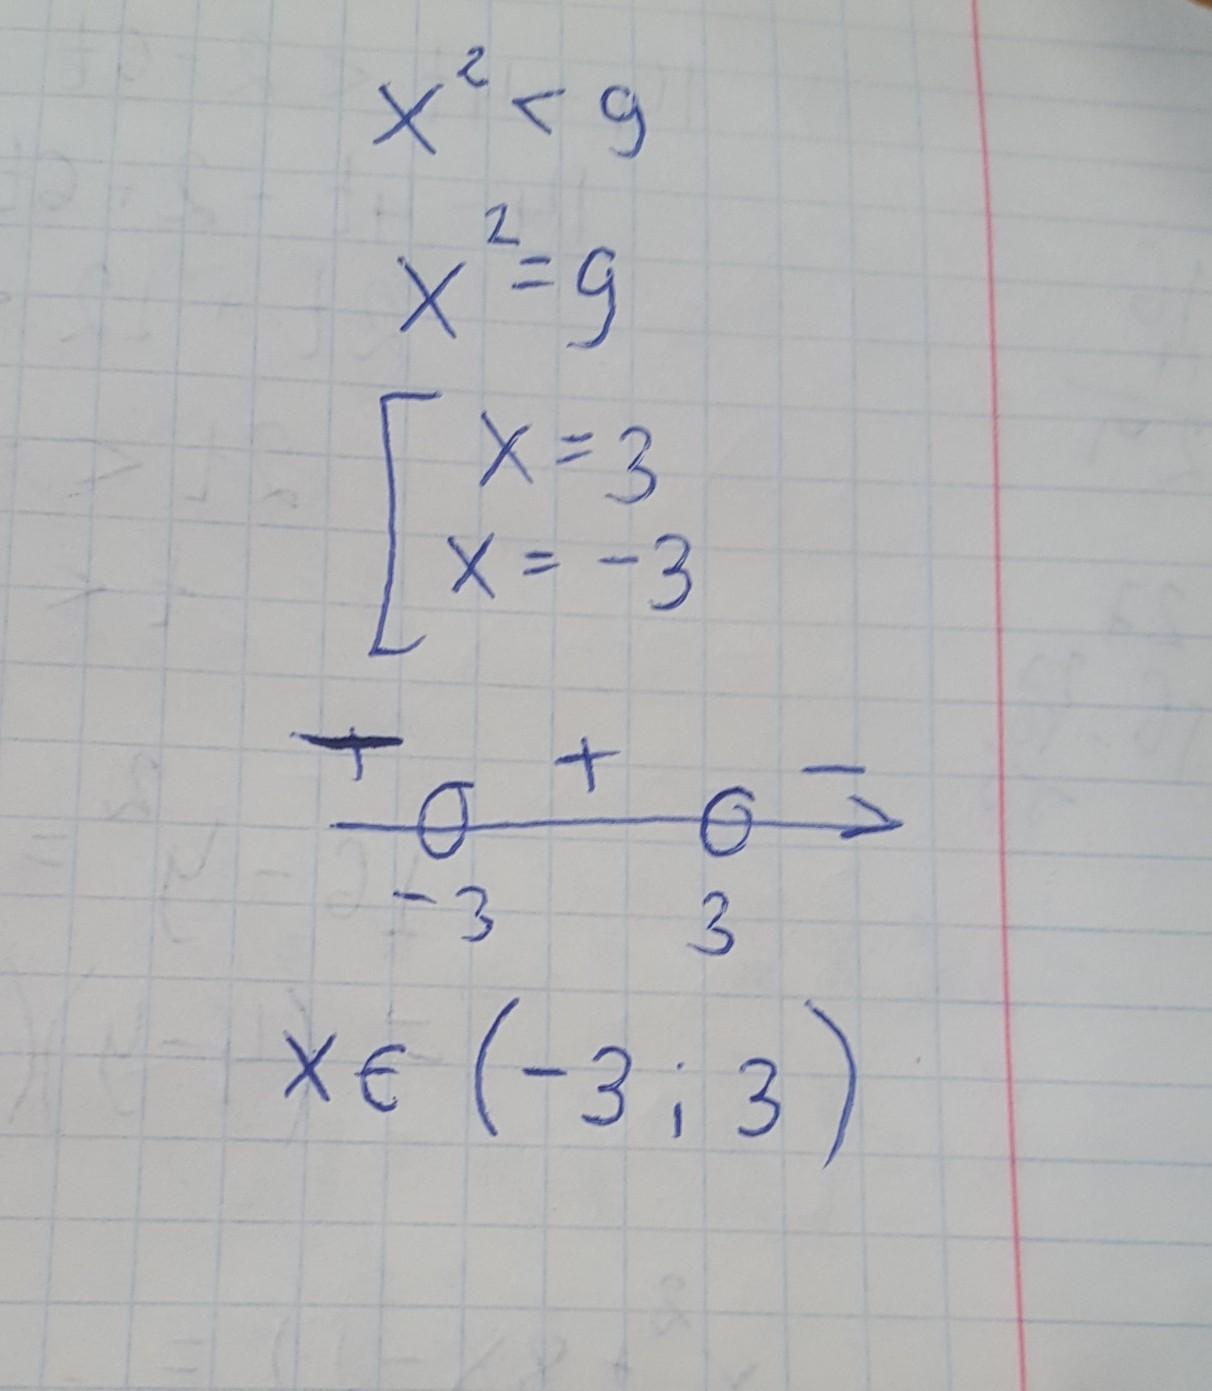 x² < 9
x² = 9
[ x = 3
x = -3
− + −
-3 3
x ∈ (-3; 3)